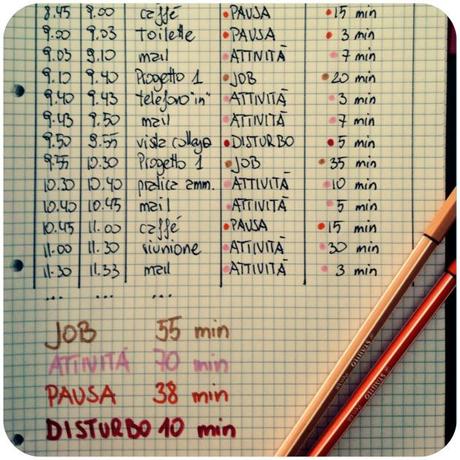 8.45 9.00 caffé PAUSA 15 min
9.00 9.03 toilette PAUSA 3 min
9.03 9.10 mail ATTIVITÀ 7 min
9.10 9.40 Progetto 1 JOB 20 min
9.40 9.43 telefono "in" ATTIVITÀ 3 min
9.43 9.50 mail ATTIVITÀ 7 min
9.50 9.55 visita collega DISTURBO 5 min
9.55 10.30 Progetto 1 JOB 35 min
10.30 10.40 pratica amm. ATTIVITÀ 10 min
10.40 10.45 mail ATTIVITÀ 5 min
10.45 11.00 caffé PAUSA 15 min
11.00 11.30 riunione ATTIVITÀ 30 min
11.30 11.33 mail ATTIVITÀ 3 min
... ... ...
JOB 55 min
ATTIVITÀ 70 min
PAUSA 38 min
DISTURBO 10 min
STABILO
STABILO